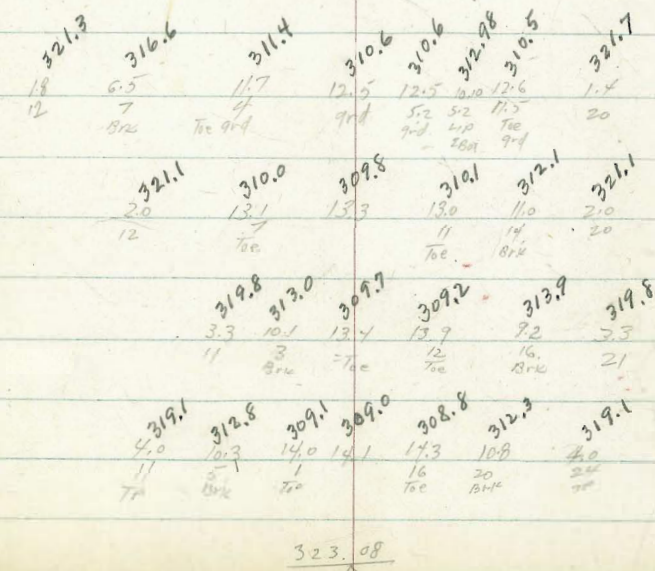 321.3 316.6 311.4 310.6 310.6 312.98 310.5 321.7
1.8 6.5 11.7 12.5 12.5 10.10 12.6 1.4
12 7 4 grd 5.2 5.2 11.5 20
Brk Toe grd grd Toe
grd
321.1 310.0 309.8 310.1 312.1 321.1
2.0 13.1 13.3 13.0 11.0 2.0
12 7 11 14 20
Toe Toe Brk
319.8 313.0 309.7 309.2 313.9 319.8
3.3 10.1 13.4 13.9 9.2 3.3
11 3 =Toe 12 16 21
Brk Toe Brk
319.1 312.8 309.1 309.0 308.8 312.3 319.1
4.0 10.3 14.0 14.1 14.3 10.8 4.0
11 5 1 16 20 24
TP Brk Toe Toe Brk TP
323.08